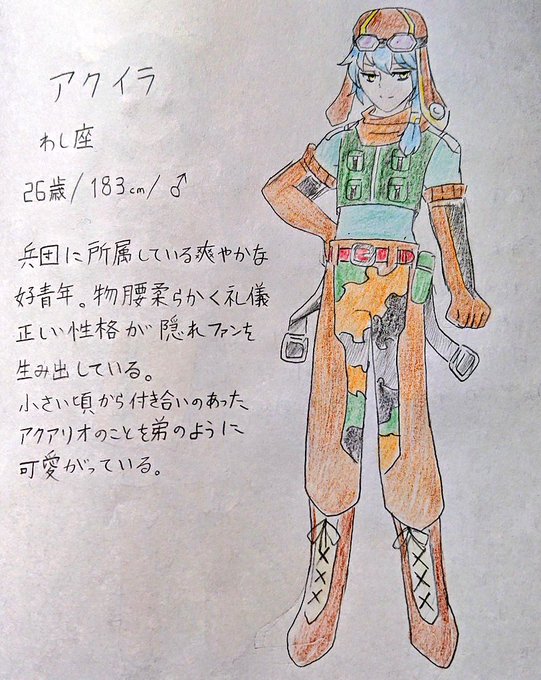 アクイラ
わし座
26歳/183cm/♂
兵団に所属している爽やかな
好青年。物腰柔らかく礼儀
正しい性格が隠れファンを
生み出している。
小さい頃から付き合いのあった
アクアリオのことを弟のように
可愛がっている。